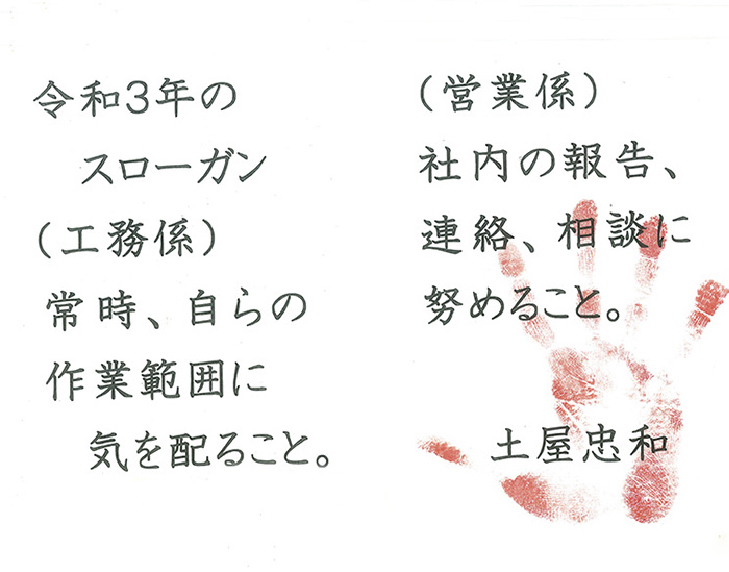 令和3年の
スローガン
(工務係)
常時、自らの
作業範囲に
気を配ること。
(営業係)
社内の報告、
連絡、相談に
努めること。
土屋忠和